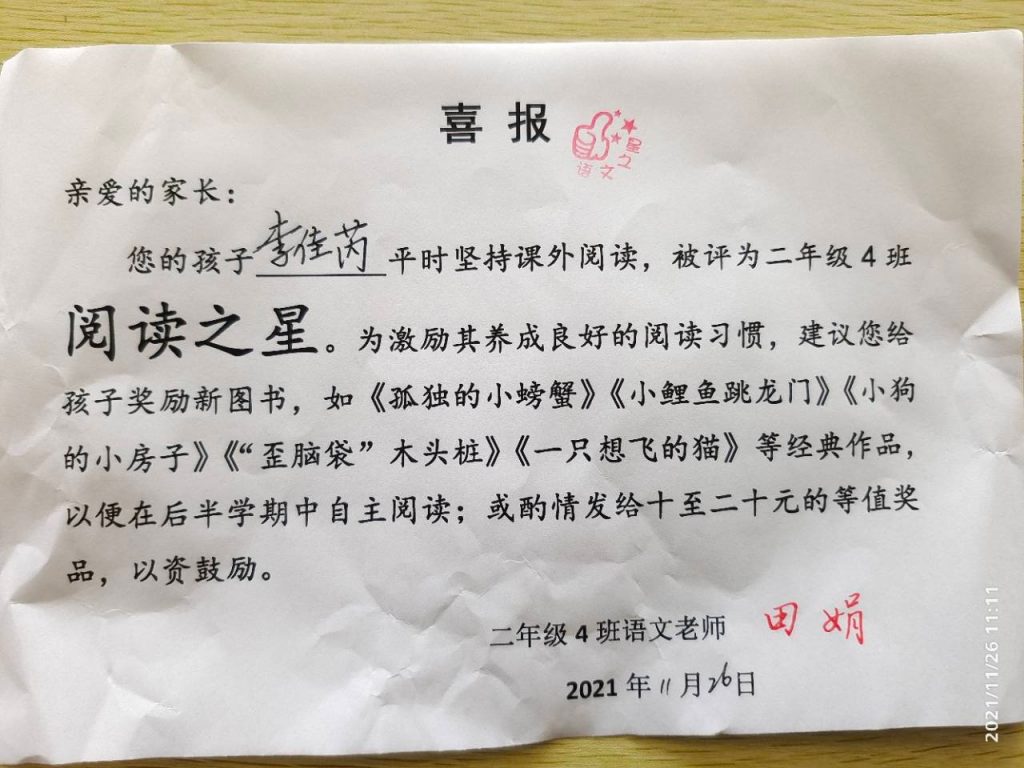 喜报
语文之星
亲爱的家长：
您的孩子李佳芮平时坚持课外阅读，被评为二年级4班
阅读之星。为激励其养成良好的阅读习惯，建议您给
孩子奖励新图书，如《孤独的小螃蟹》《小鲤鱼跳龙门》《小狗
的小房子》《“歪脑袋”木头桩》《一只想飞的猫》等经典作品，
以便在后半学期中自主阅读；或酌情发给十至二十元的等值奖
品，以资鼓励。
二年级4班语文老师 田娟
2021年11月26日
2021/11/26 11:11